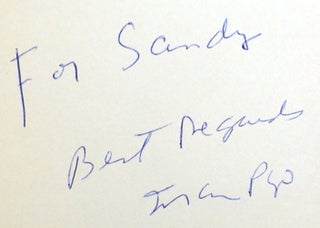 For Sandy
Best Regards